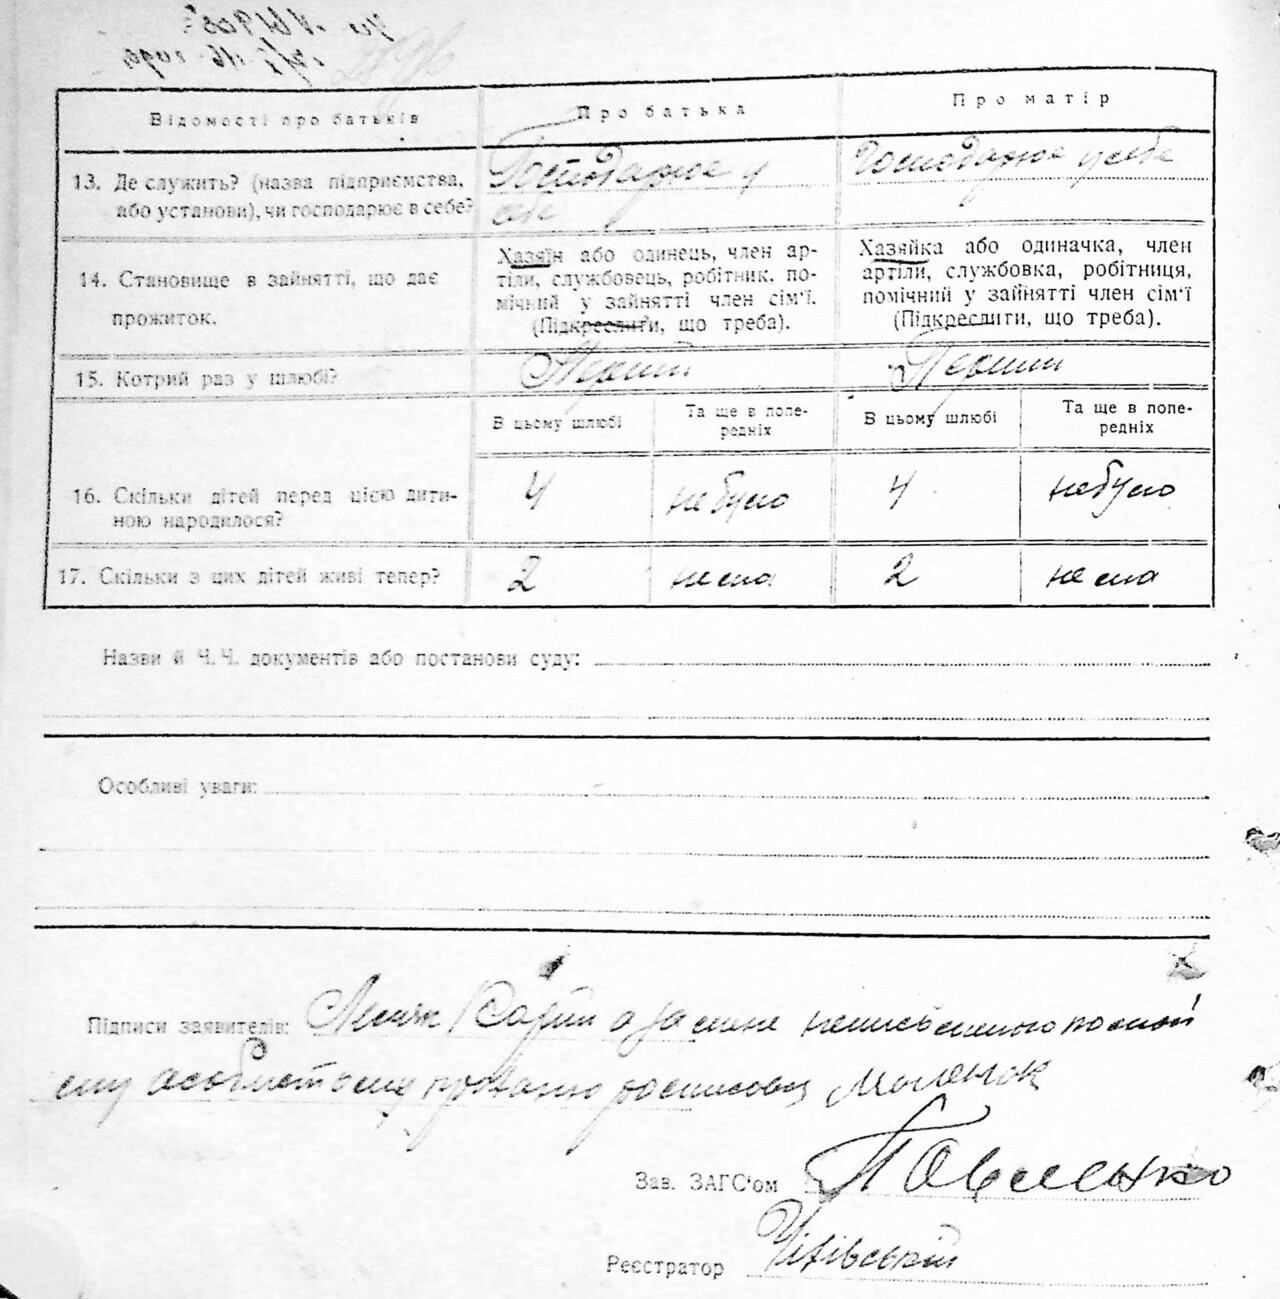 Відомості про батьків
Про батька
Про матір
13. Де служить? (назва підприємства, або установи), чи господарює в себе?
Господарює у
себе
Господарює у себе
14. Становище в зайнятті, що дає
прожиток.
Хазяїн або одинець, член ар-
тілі, службовець, робітник, по-
мічний у зайнятті член сім'ї.
(Підкреслити, що треба).
Хазяйка або одиначка, член
артіли, службовка, робітниця,
помічний у зайнятті член сім'ї
(Підкреслити, що треба).
15. Котрий раз у шлюбі?
Перший
Перший
В цьому шлюбі
Та ще в попе-
редніх
В цьому шлюбі
Та ще в попе-
редніх
16. Скільки дітей перед цією дити-
ною народилося?
4
не було
4
не було
17. Скільки з цих дітей живі тепер?
2
нема
2
нема
Назви й Ч.Ч. документів або постанови суду:
Особливі уваги:
Підписи заявителів:
Зав. ЗАГС'ом Павленко
Реєстратор